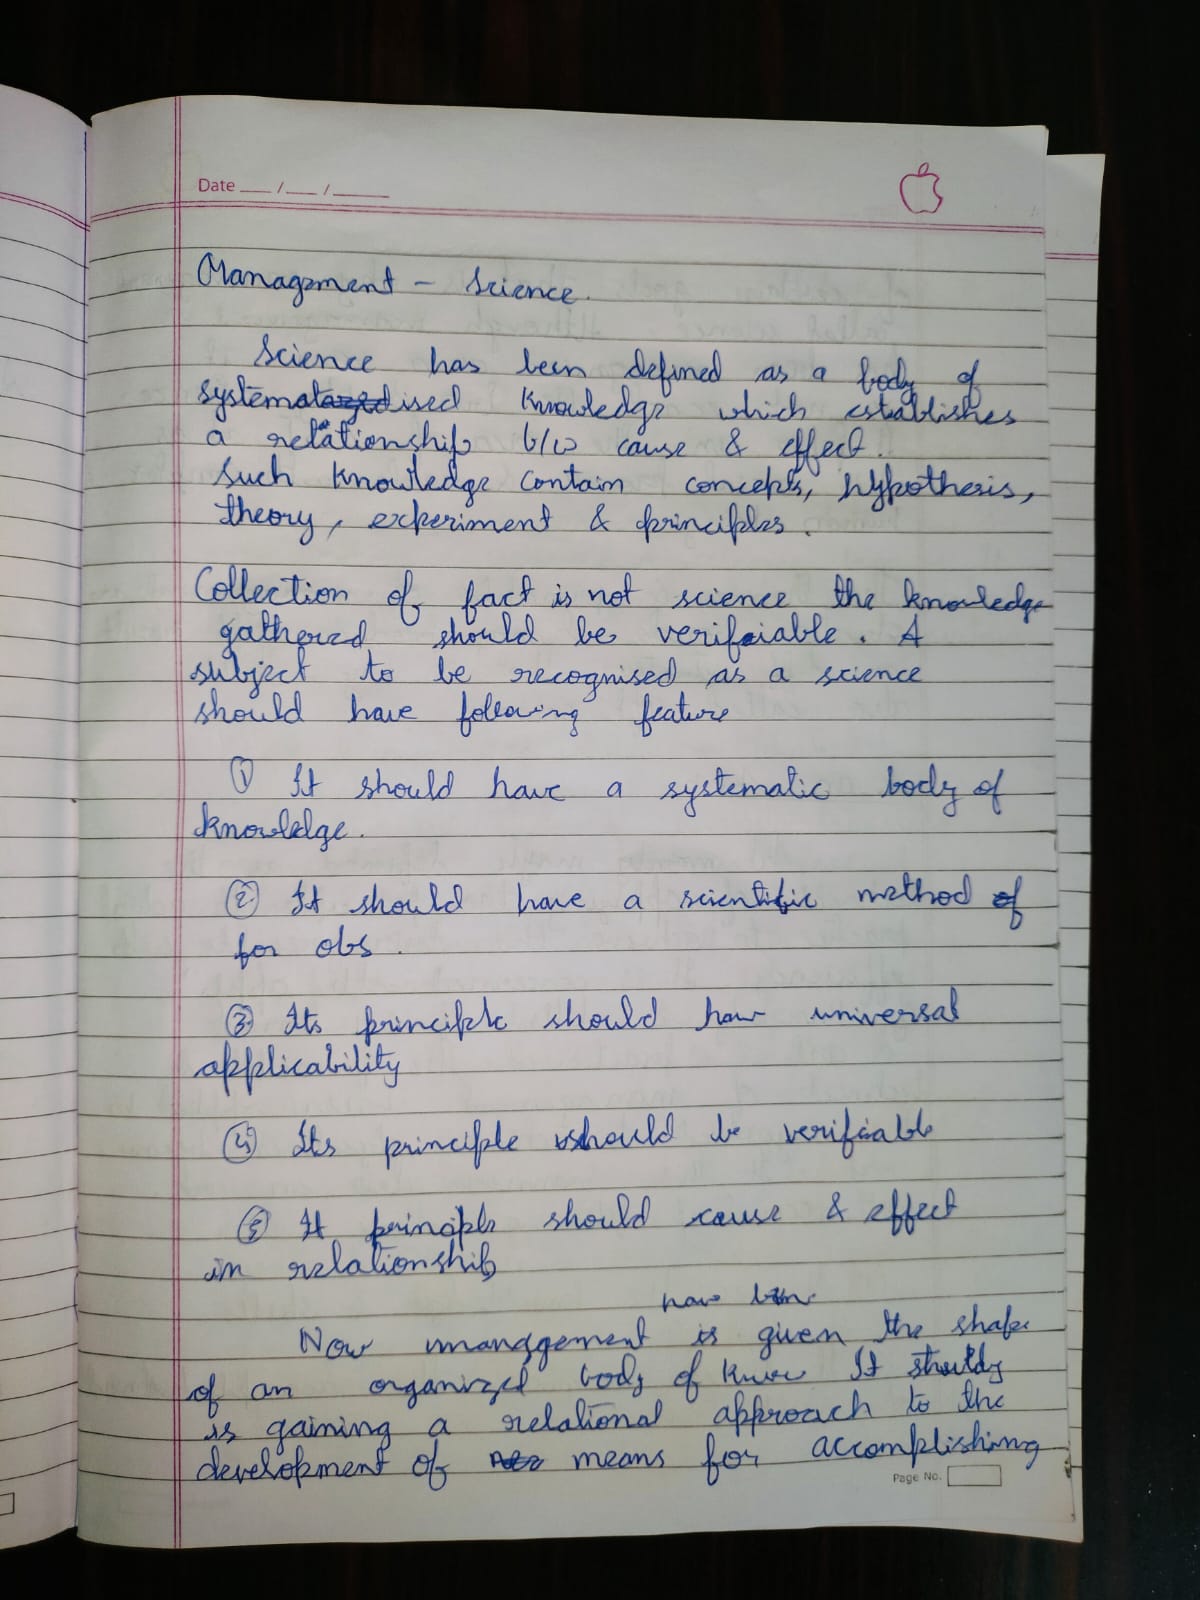 Date __/__/____
Management - Science.
Science has been defined as a body of
systematised knowledge which establishes
a relationship b/w cause & effect.
such knowledge contain concepts, hypothesis,
theory, experiment & principles.
Collection of fact is not science the knowledge
gathered should be verifiable. A
subject to be recognised as a science
should have following feature
① It should have a systematic body of
knowledge.
② It should have a scientific method of
for obs.
③ Its principle should have universal
applicability
④ Its principle should be verifiable
⑤ It principle should cause & effect
in relationship
have been
Now management is given the shape
of an organized body of It
is gaining a relational approach to the
development of means for accomplishing
Page No.